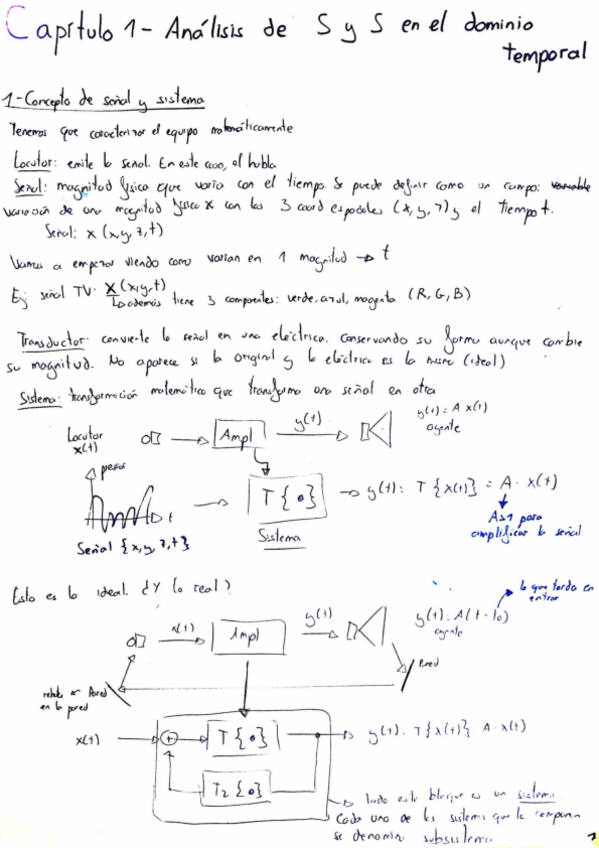 Capítulo 1 - Análisis de S y S en el dominio
temporal
1.- Concepto de señal y sistema
Tenemos que caracterizar el equipo matemáticamente
Locutor: emite la señal. En este caso, el habla
Señal: magnitud física que varia con el tiempo. Se puede definir como un campo: variable
variación de una magnitud física x con las 3 coord espaciales (x, y, z) y el tiempo t.
Señal: x (x, y, z, t)
Vamos a empezar viendo como varian en 1 magnitud → t
Ej: señal TV: x (x, y, t)
↳ además tiene 3 componentes: verde, azul, magenta (R, G, B)
Transductor: convierte la señal en una eléctrica, conservando su forma aunque cambie
su magnitud. No aparece si la original y la eléctrica es la misma (ideal)
Sistema: transformación matemática que transforma una señal en otra
Locutor
x(t)
Ampl
y(t)
y(t) = A x(t)
oyente
presión
t
Señal {x, y, z, t}
T { • }
Sistema
→ y(t) = T {x(t)} = A · x(t)
A>1 para
amplificar la señal
Esto es lo ideal. ¿Y lo real?
lo que tarda en
entrar
x(t)
Ampl
y(t)
y(t) = A(t - t0)
oyente
Pared
Pared
rebota
en la pared
x(t)
+
T { • }
y(t) = T{x(t)} A · x(t)
T2 { • }
todo este bloque es un sistema
Cada uno de los sistemas que lo componen
se denomina subsistema.
1